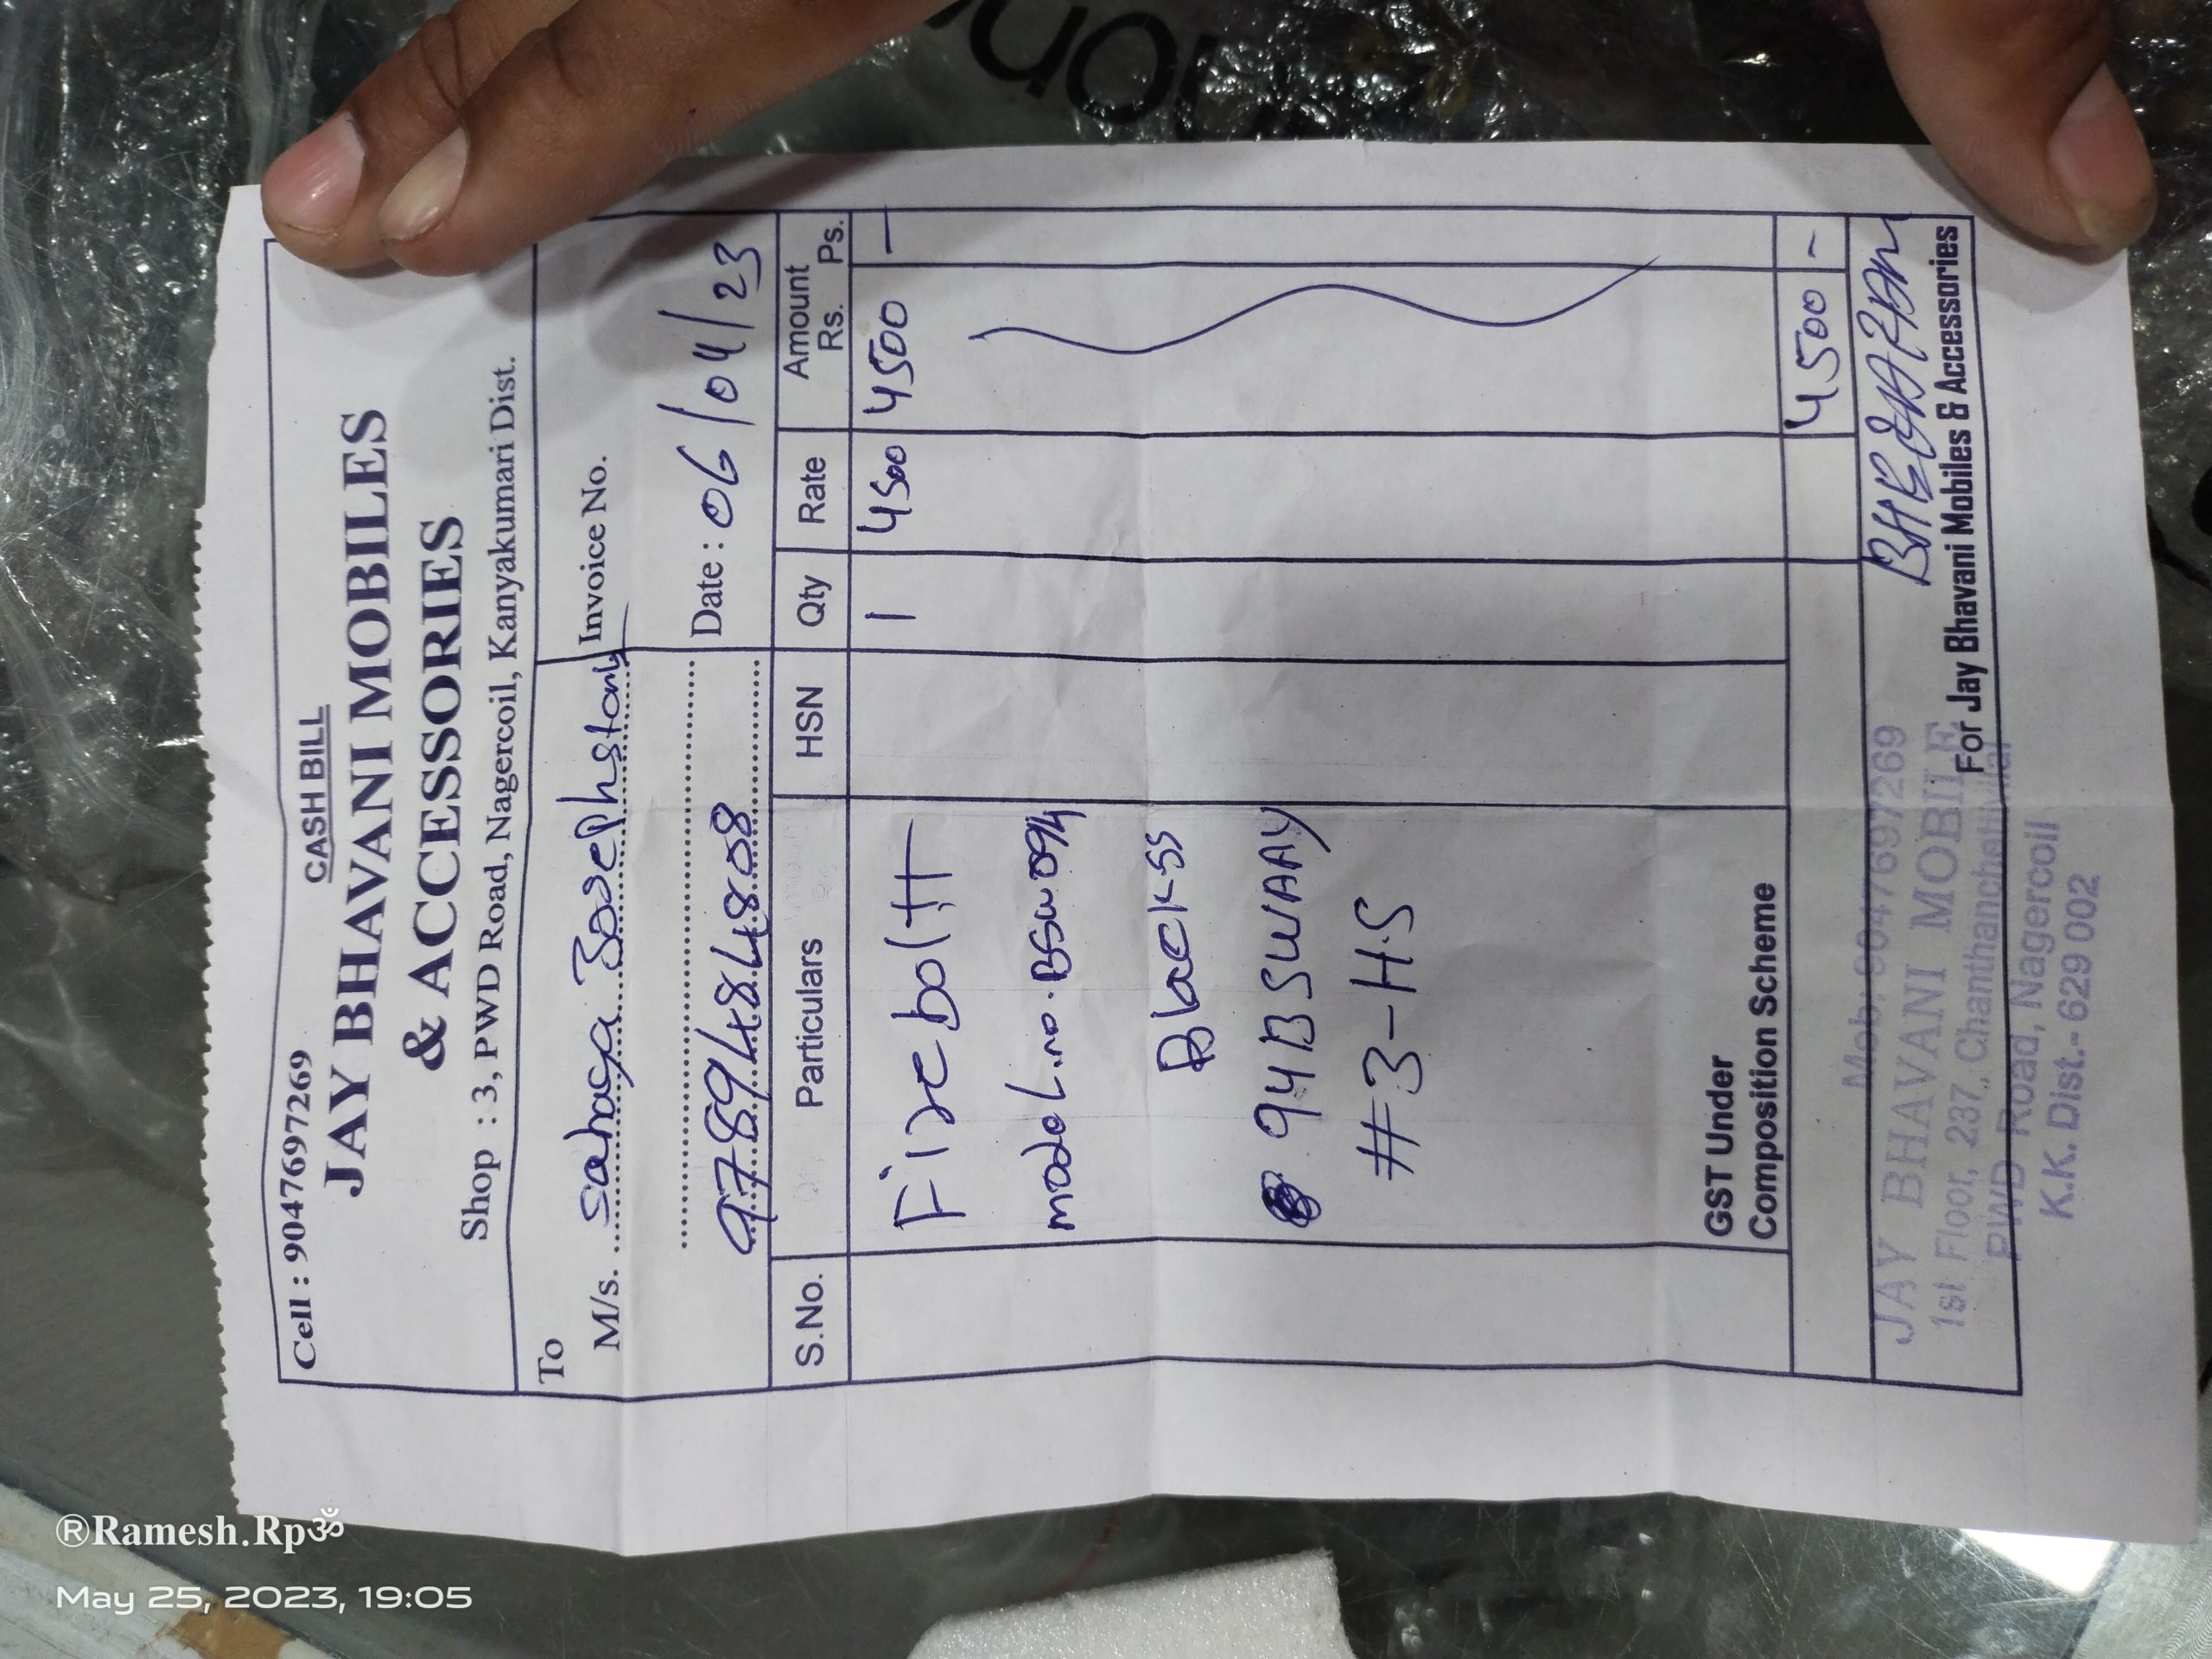 Cell : 9047697269
CASH BILL
JAY BHAVANI MOBILES
& ACCESSORIES
Shop : 3, PWD Road, Nagercoil, Kanyakumari Dist.
To
M/s. sahaya Josephstony
Invoice No.
9789484808
Date : 06/04/23
S.No. Particulars HSN Qty Rate Amount
Rs. Ps.
Firebolt 1 4500 4500 —
model.no.BSW094
Black-SS
94BSWAAY
#3-HS
GST Under
Composition Scheme
4500 -
Mob: 9047697269
JAY BHAVANI MOBILE
1st Floor, 237, 
PWD Road, Nagercoil
K.K. Dist.- 629 002
For Jay Bhavani Mobiles & Accessories
®Ramesh.Rpॐ
May 25, 2023, 19:05